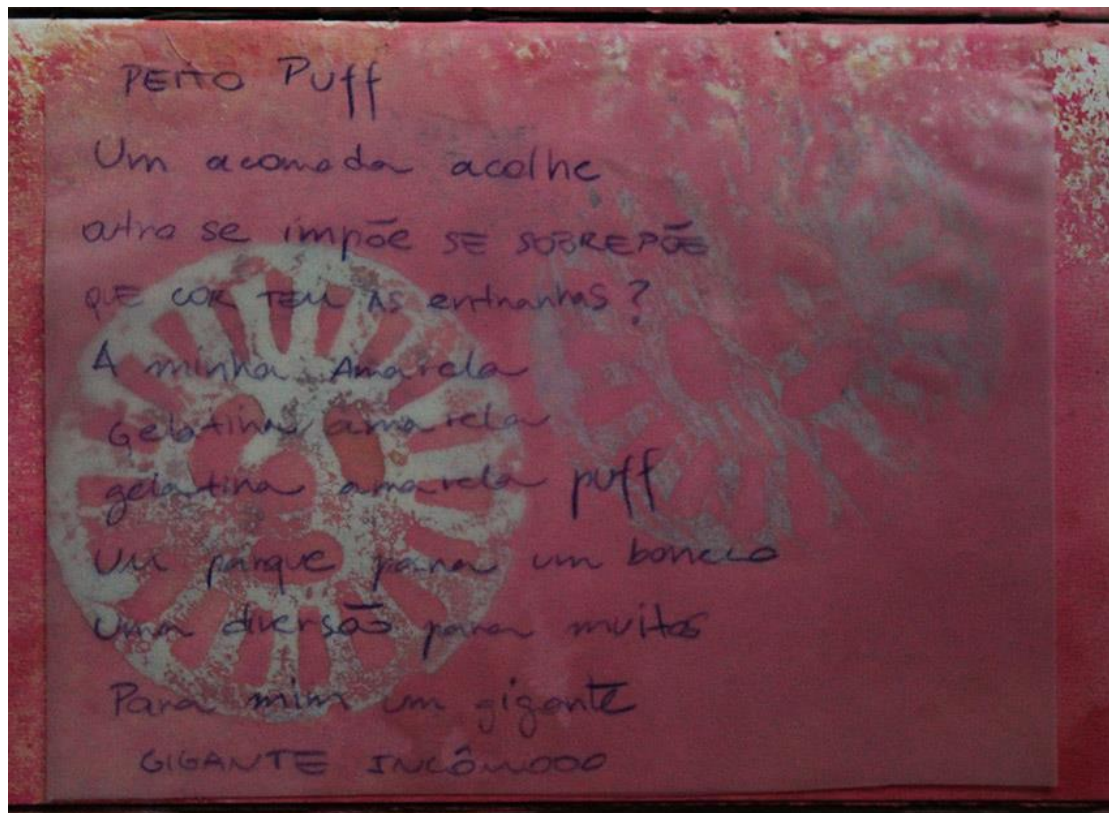 PEITO Puff
Um acomoda acolhe
outro se impõe SE SOBREPÕE
QUE COR TEM AS entranhas?
A minha Amarela
Gelatina amarela
gelatina amarela puff
Um parque para um boneco
Uma diversão para muitos
Para mim um gigante
GIGANTE INCÔMODO